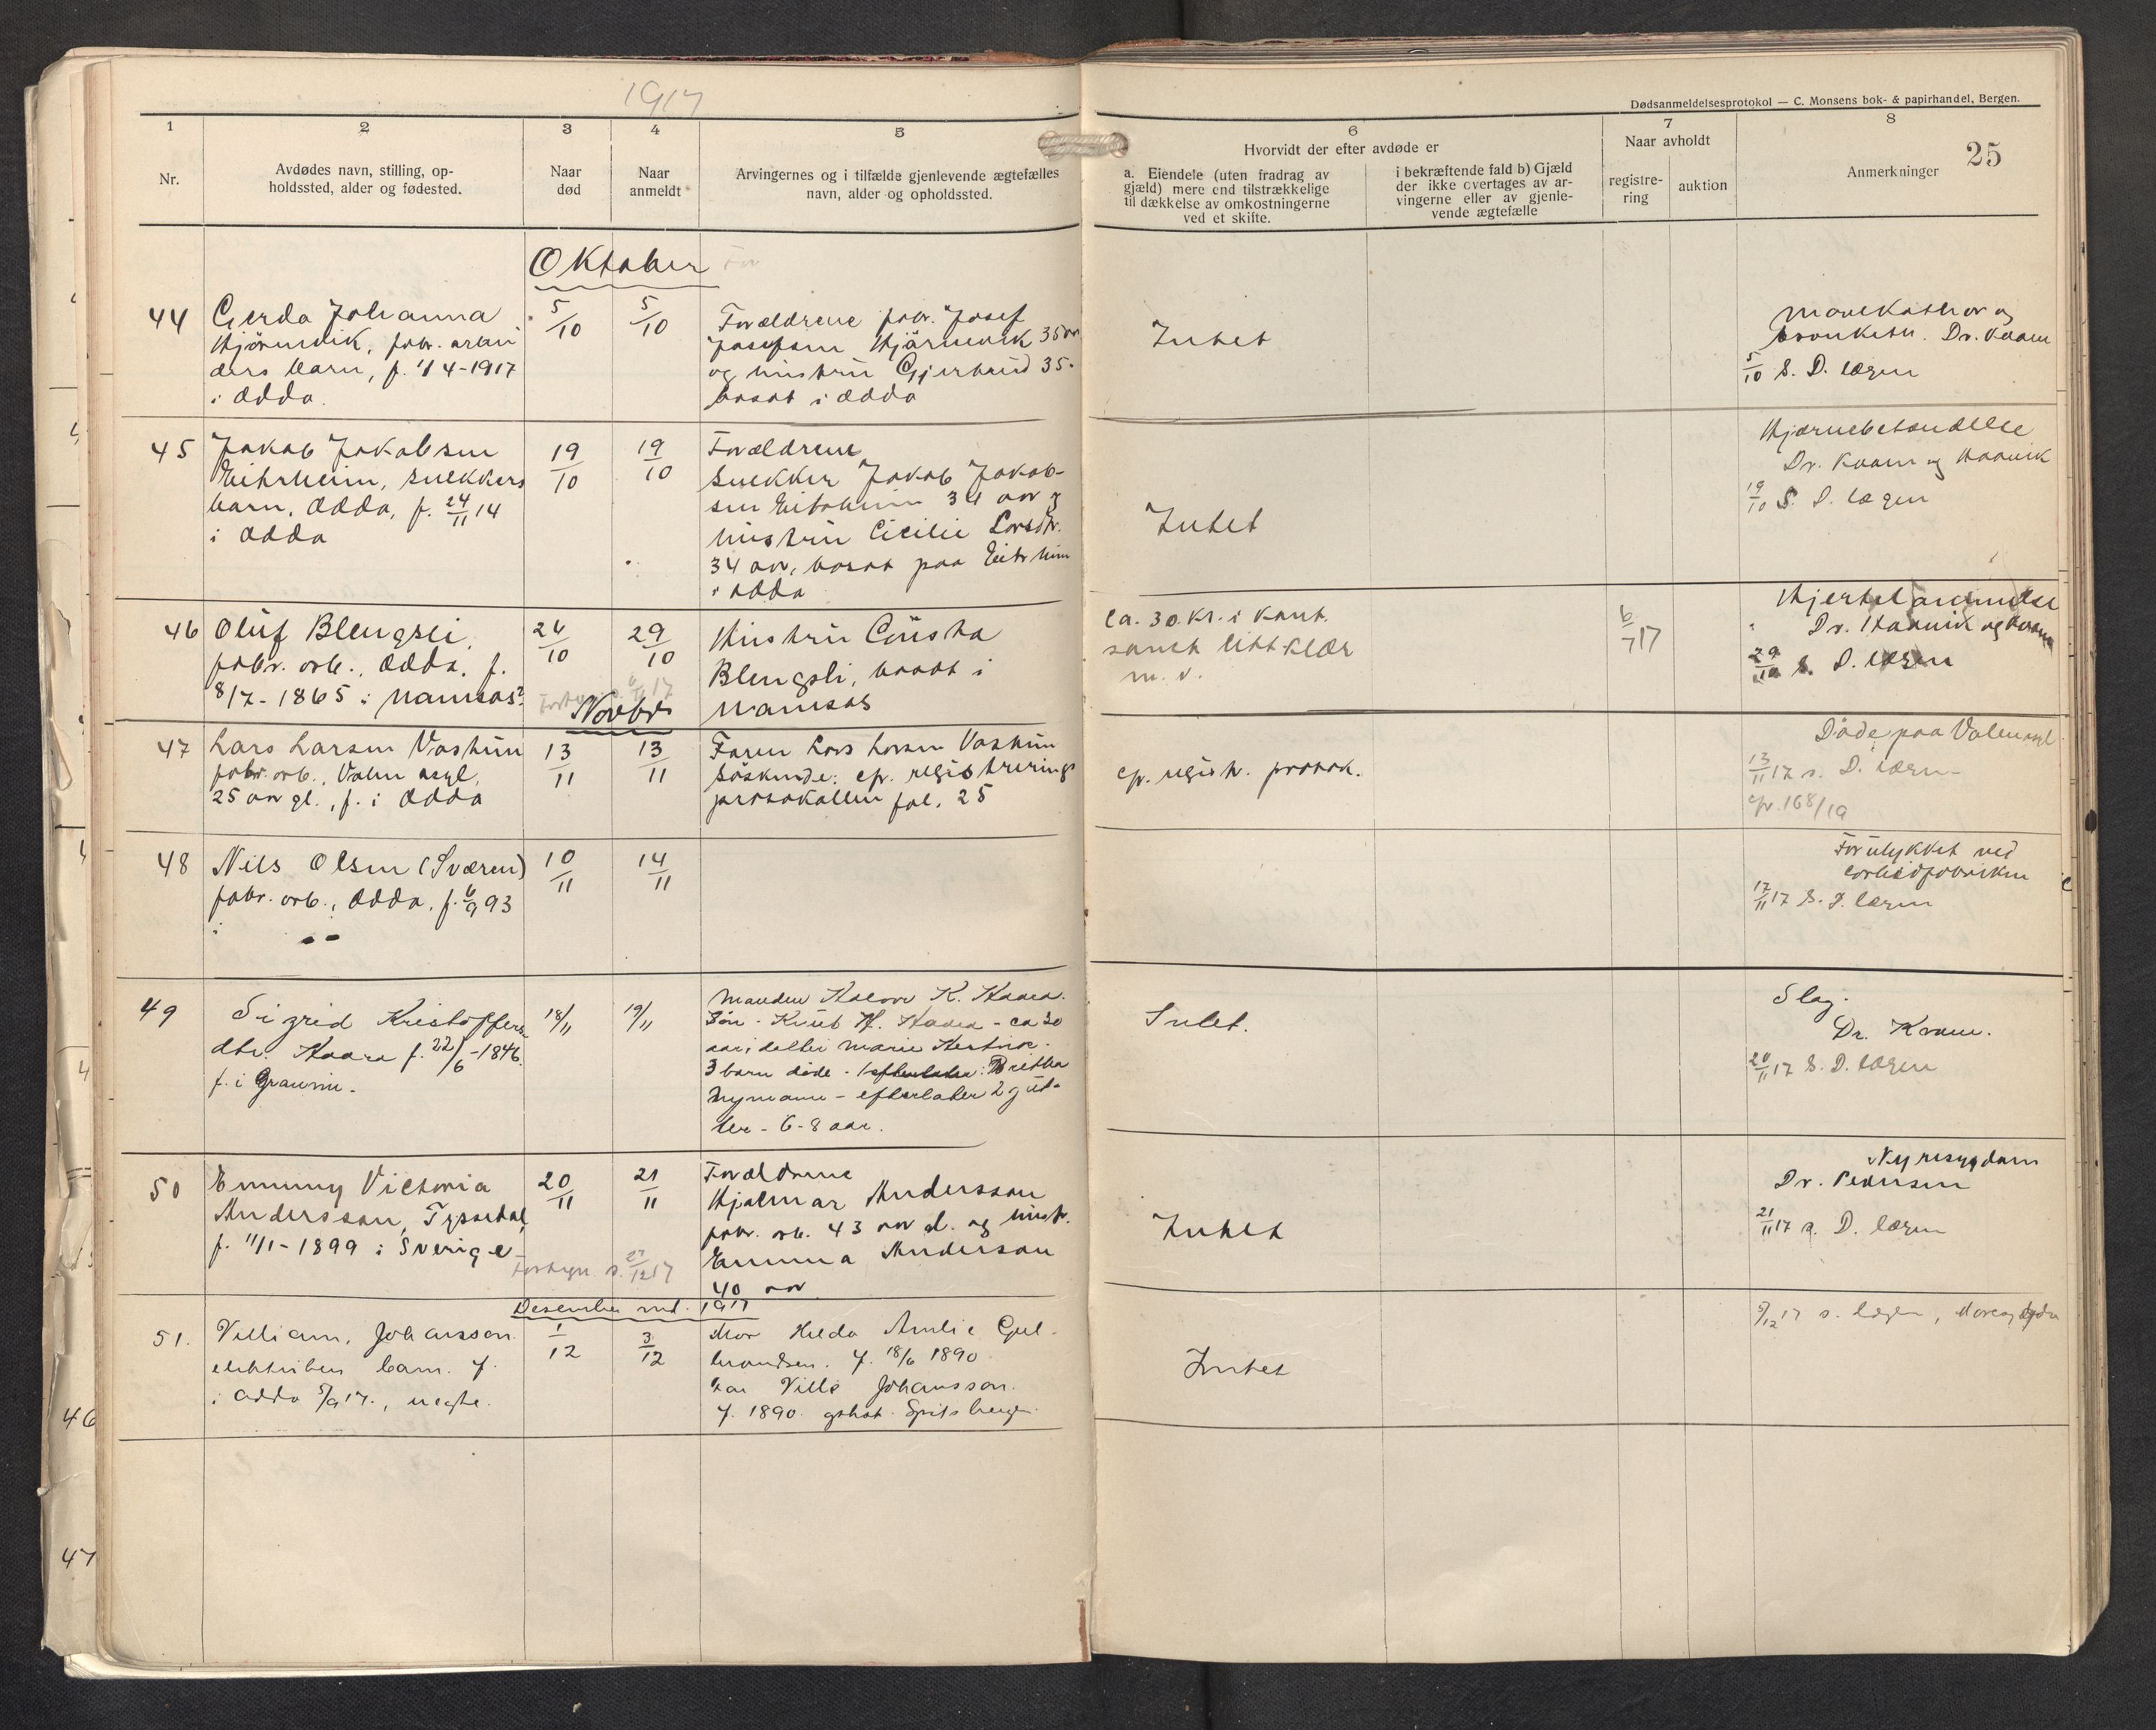 1917
Dødsanmeldelsesprotokol — C. Monsens bok- & papirhandel, Bergen.
25
1
Nr.
2
Avdødes navn, stilling, op-
holdssted, alder og fødested.
3
Naar
død
4
Naar
anmeldt
5
Arvingernes og i tilfælde gjenlevende ægtefælles
navn, alder og opholdssted.
6
Hvorvidt der efter avdøde er
a. Eiendele (uten fradrag av
gjæld) mere end tilstrækkelige
til dækkelse av omkostningerne
ved et skifte.
i bekræftende fald b) Gjæld
der ikke overtages av ar-
vingerne eller av gjenle-
vende ægtefælle
7
Naar avholdt
registre-
ring
auktion
8
Anmerkninger
Oktober
44
Gerda Johanna
Hjørnevik, fabr. arbei
ders barn, f. 1/4-1917
i Odda.
5/10
5/10
Forældrene fabr. Josef
Josefsen Hjärnevik 35 aar
og hustru Gjertrud 35.
bosat i Odda
Intet
Mavekatharr og
bronketh. Dr. Kvam
5/10 S. D. lægen
45
Jakob Jakobsen
Eitrheim, snekkers
barn, Odda, f. 24/11 14
i Odda
19/10
19/10
Forældrene
snekker Jakob Jakob-
sen Eitrheim 34 aar og
hustru Cicilie Larsdtr.
34 aar, bosat paa Eitrheim
i Odda
Intet
Hjærnebetændelse
Dr. Kvam og Haavik
19/10 S. D. lægen
46
Oluf Blengsli,
fabr. arb., Odda, f.
8/7-1865 i Namsos.
26/10
29/10
Hustru
Blengsli, bosat i
Namsos
ca. 30 kr. i kont.
samt litt klær
m. v.
6/17
Hjertelammelse
Dr. Haavik og Kvam
29/10 s. D. lægen
Novbr.
47
Lars Larsen Vastun
fabr. arb., Valen asyl,
25 aar gl., f. i Odda
13/11
13/11
Faren Lars Larsen Vastun
søskende: cp. registrerings
protokollen fol. 25
cp. registr. protok.
Døde paa Valen asyl
13/11 17 s. D. lægen
cp. 168/19
48
Nils Olsen (Sværen)
fabr. arb., Odda, f. 6/9 93
i
10/11
14/11
Forulykket ved
carbidfabrikken
17/11 17 S. D. lægen
49
Sigrid Kristoffers-
dtr. Haara f. 22/6-1846.
f. i Graven.
18/11
19/11
Manden Halvor K. Haara.
Søn - Knut H. Haara - ca 30
aar, datter Marie
3 barn døde - 1 efterlater: Britha
Nymann - efterlater 2 gut-
ter - 6-8 aar.
Intet.
Slag.
Dr. Kvam.
20/11 17 S. D. lægen
50
Emmy Victoria
Andersson, Tyssedal,
f. 11/1-1899 i Sverige
20/11
21/11
Forældrene
Hjalmar Andersson
fabr. arb. 43 aar gl. og hustr.
Emma Anderson
40 aar
Intet
Nyresygdom
Dr. Pedersen
21/11 17 s. D. lægen
Desember md. 1917
51.
Villiam, Johansson
elektrikers barn. f.
i Odda 5/9 17., uegte.
1/12
3/12
Mor Hilda Amlie Gul-
brandsen. f. 18/6 1890
Far Ville Johansson.
f. 1890. Spitsbergen.
Intet
5/12 17 s. lægen,
46
47